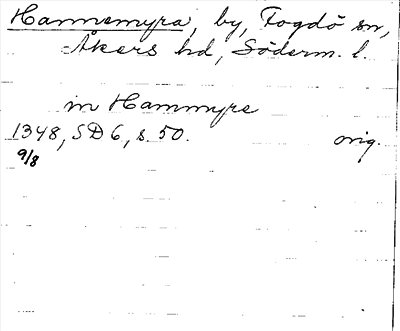 Hammemyra, by, Fogdö sn,
Åkers hd, Söderm. l.
in Hammyre
1348, SD 6, s. 50. orig.
9/8